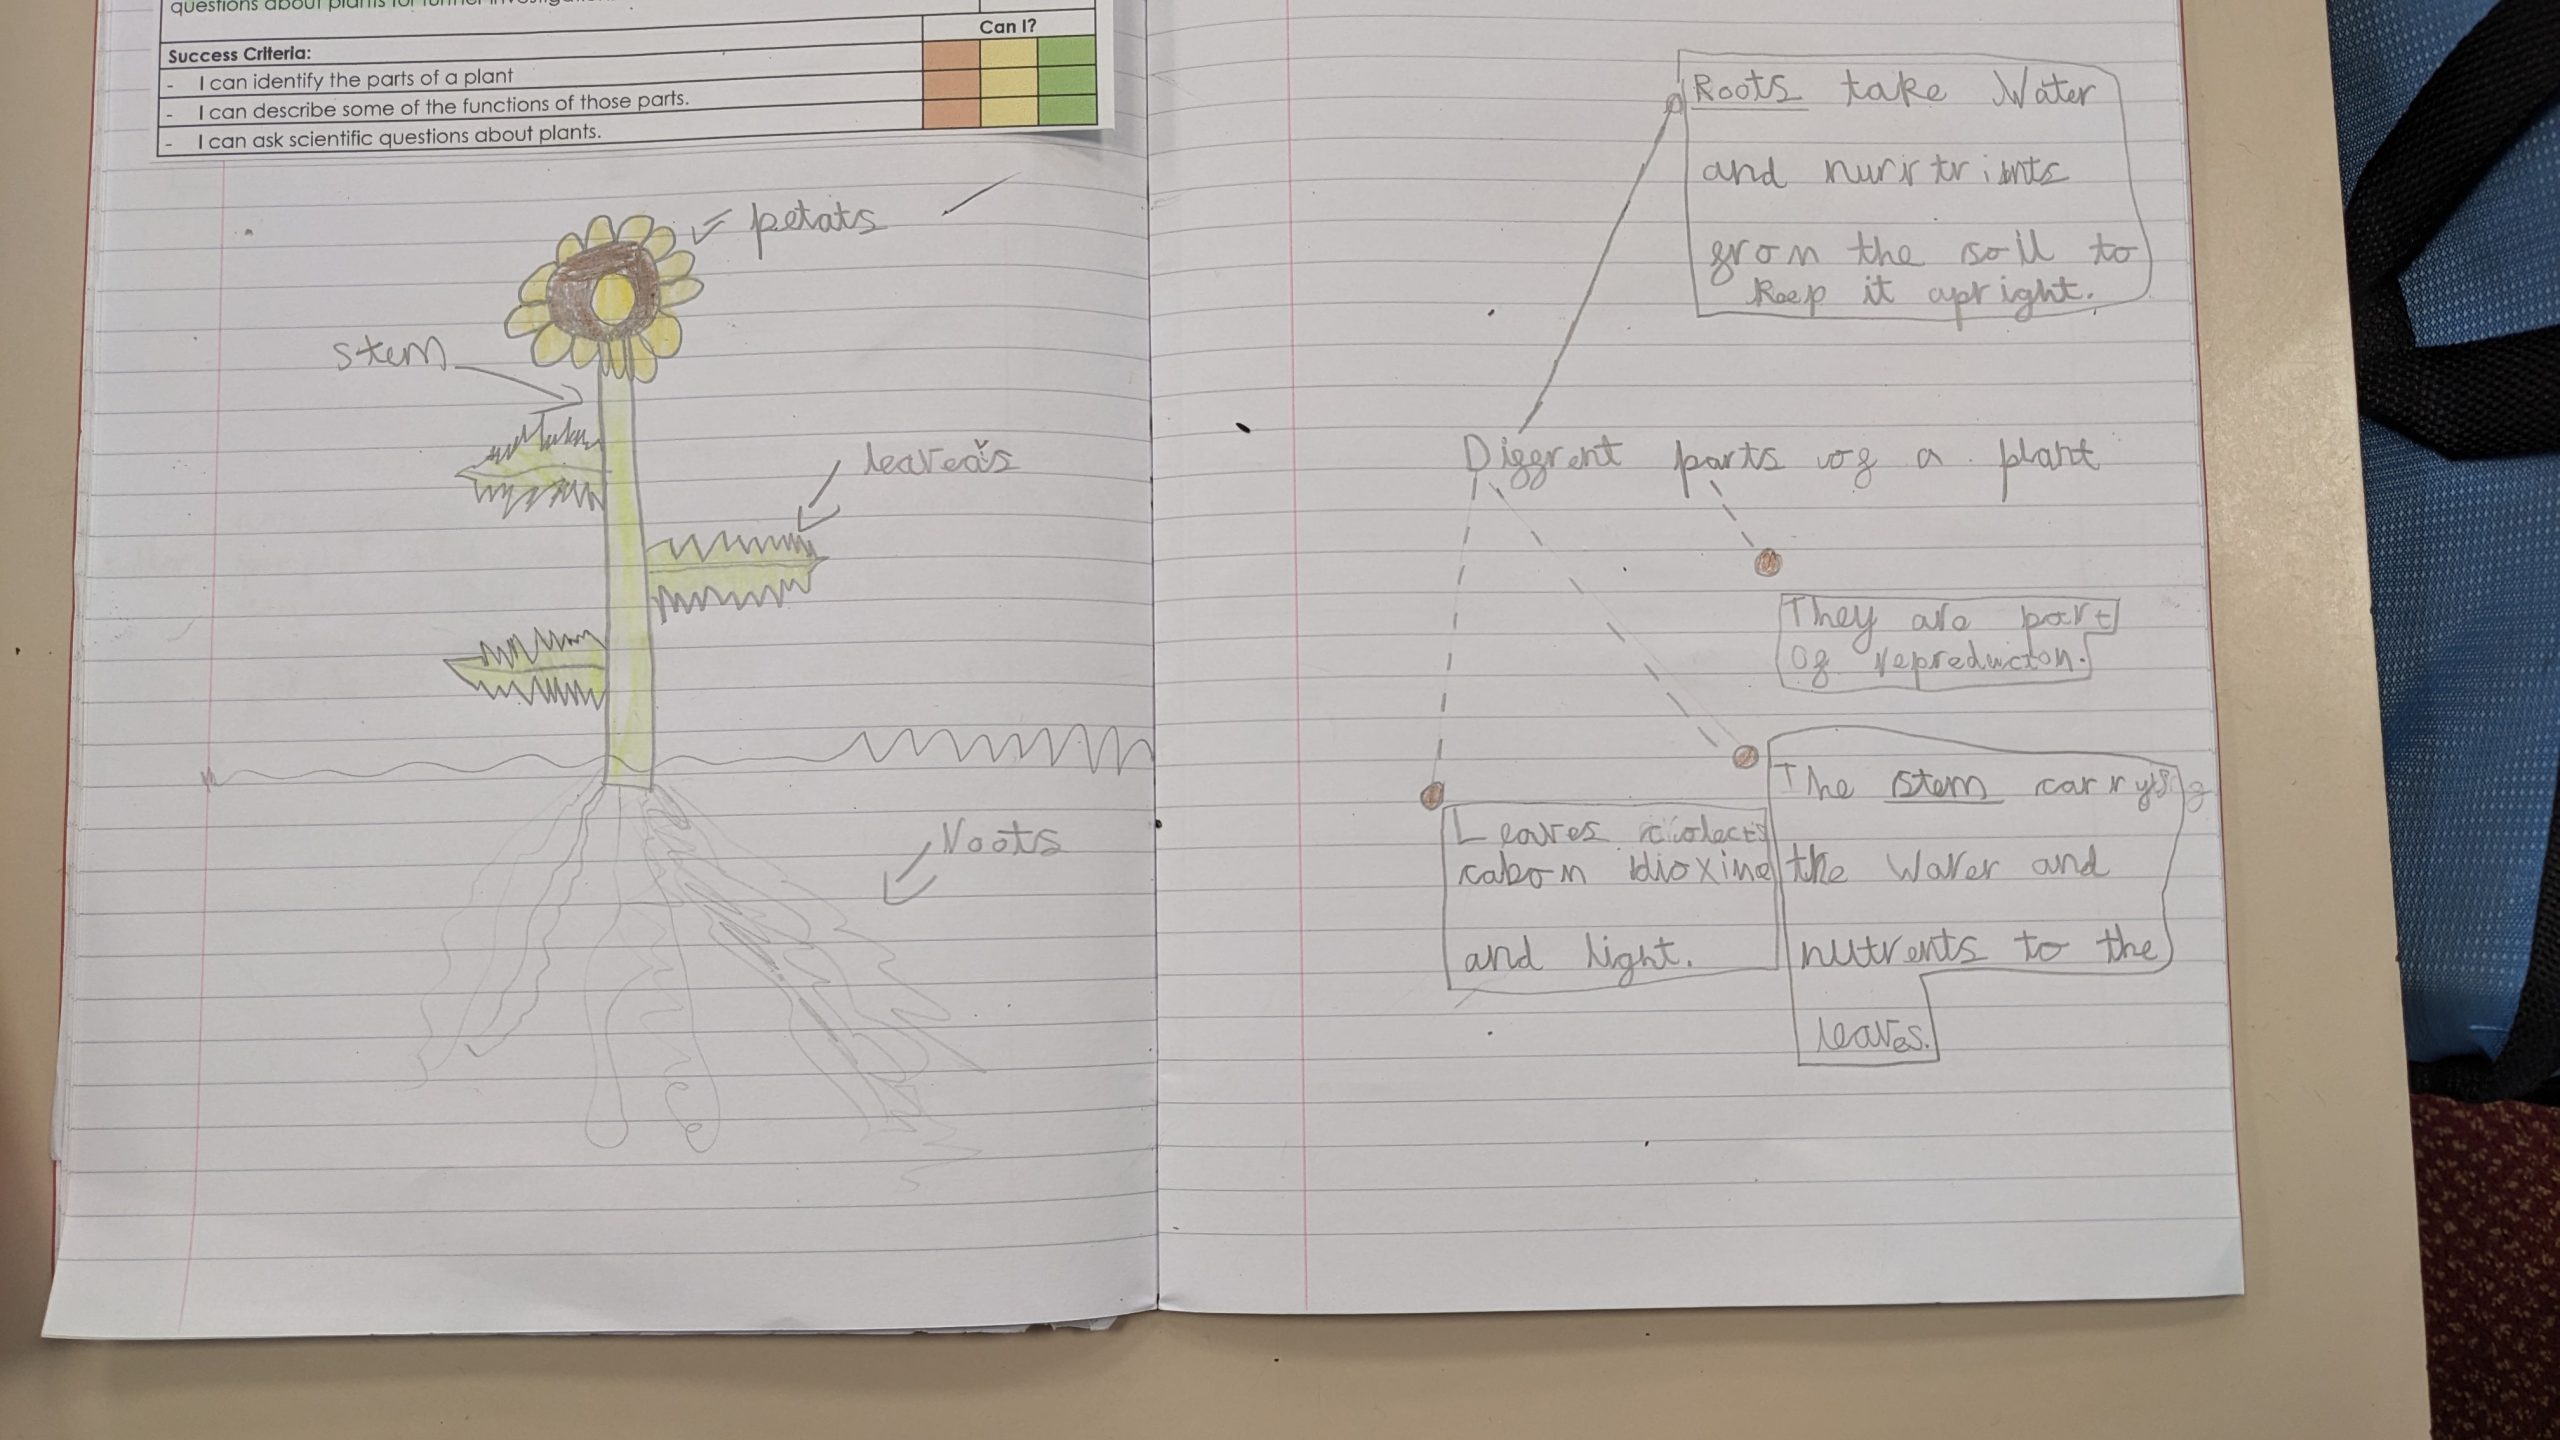 questions about plants for further investigation.
Can I?
Success Criteria:
- I can identify the parts of a plant
- I can describe some of the functions of those parts.
- I can ask scientific questions about plants.
petats
stem
leaveas
roots
Roots take Water
and
from the soil to
keep it upright.
Diffrent parts of a plant
They are part
of repreducton.
The stem carrys
the Water and
nutrents to the
leaves.
Leaves colects
cabon dioxine
and light.